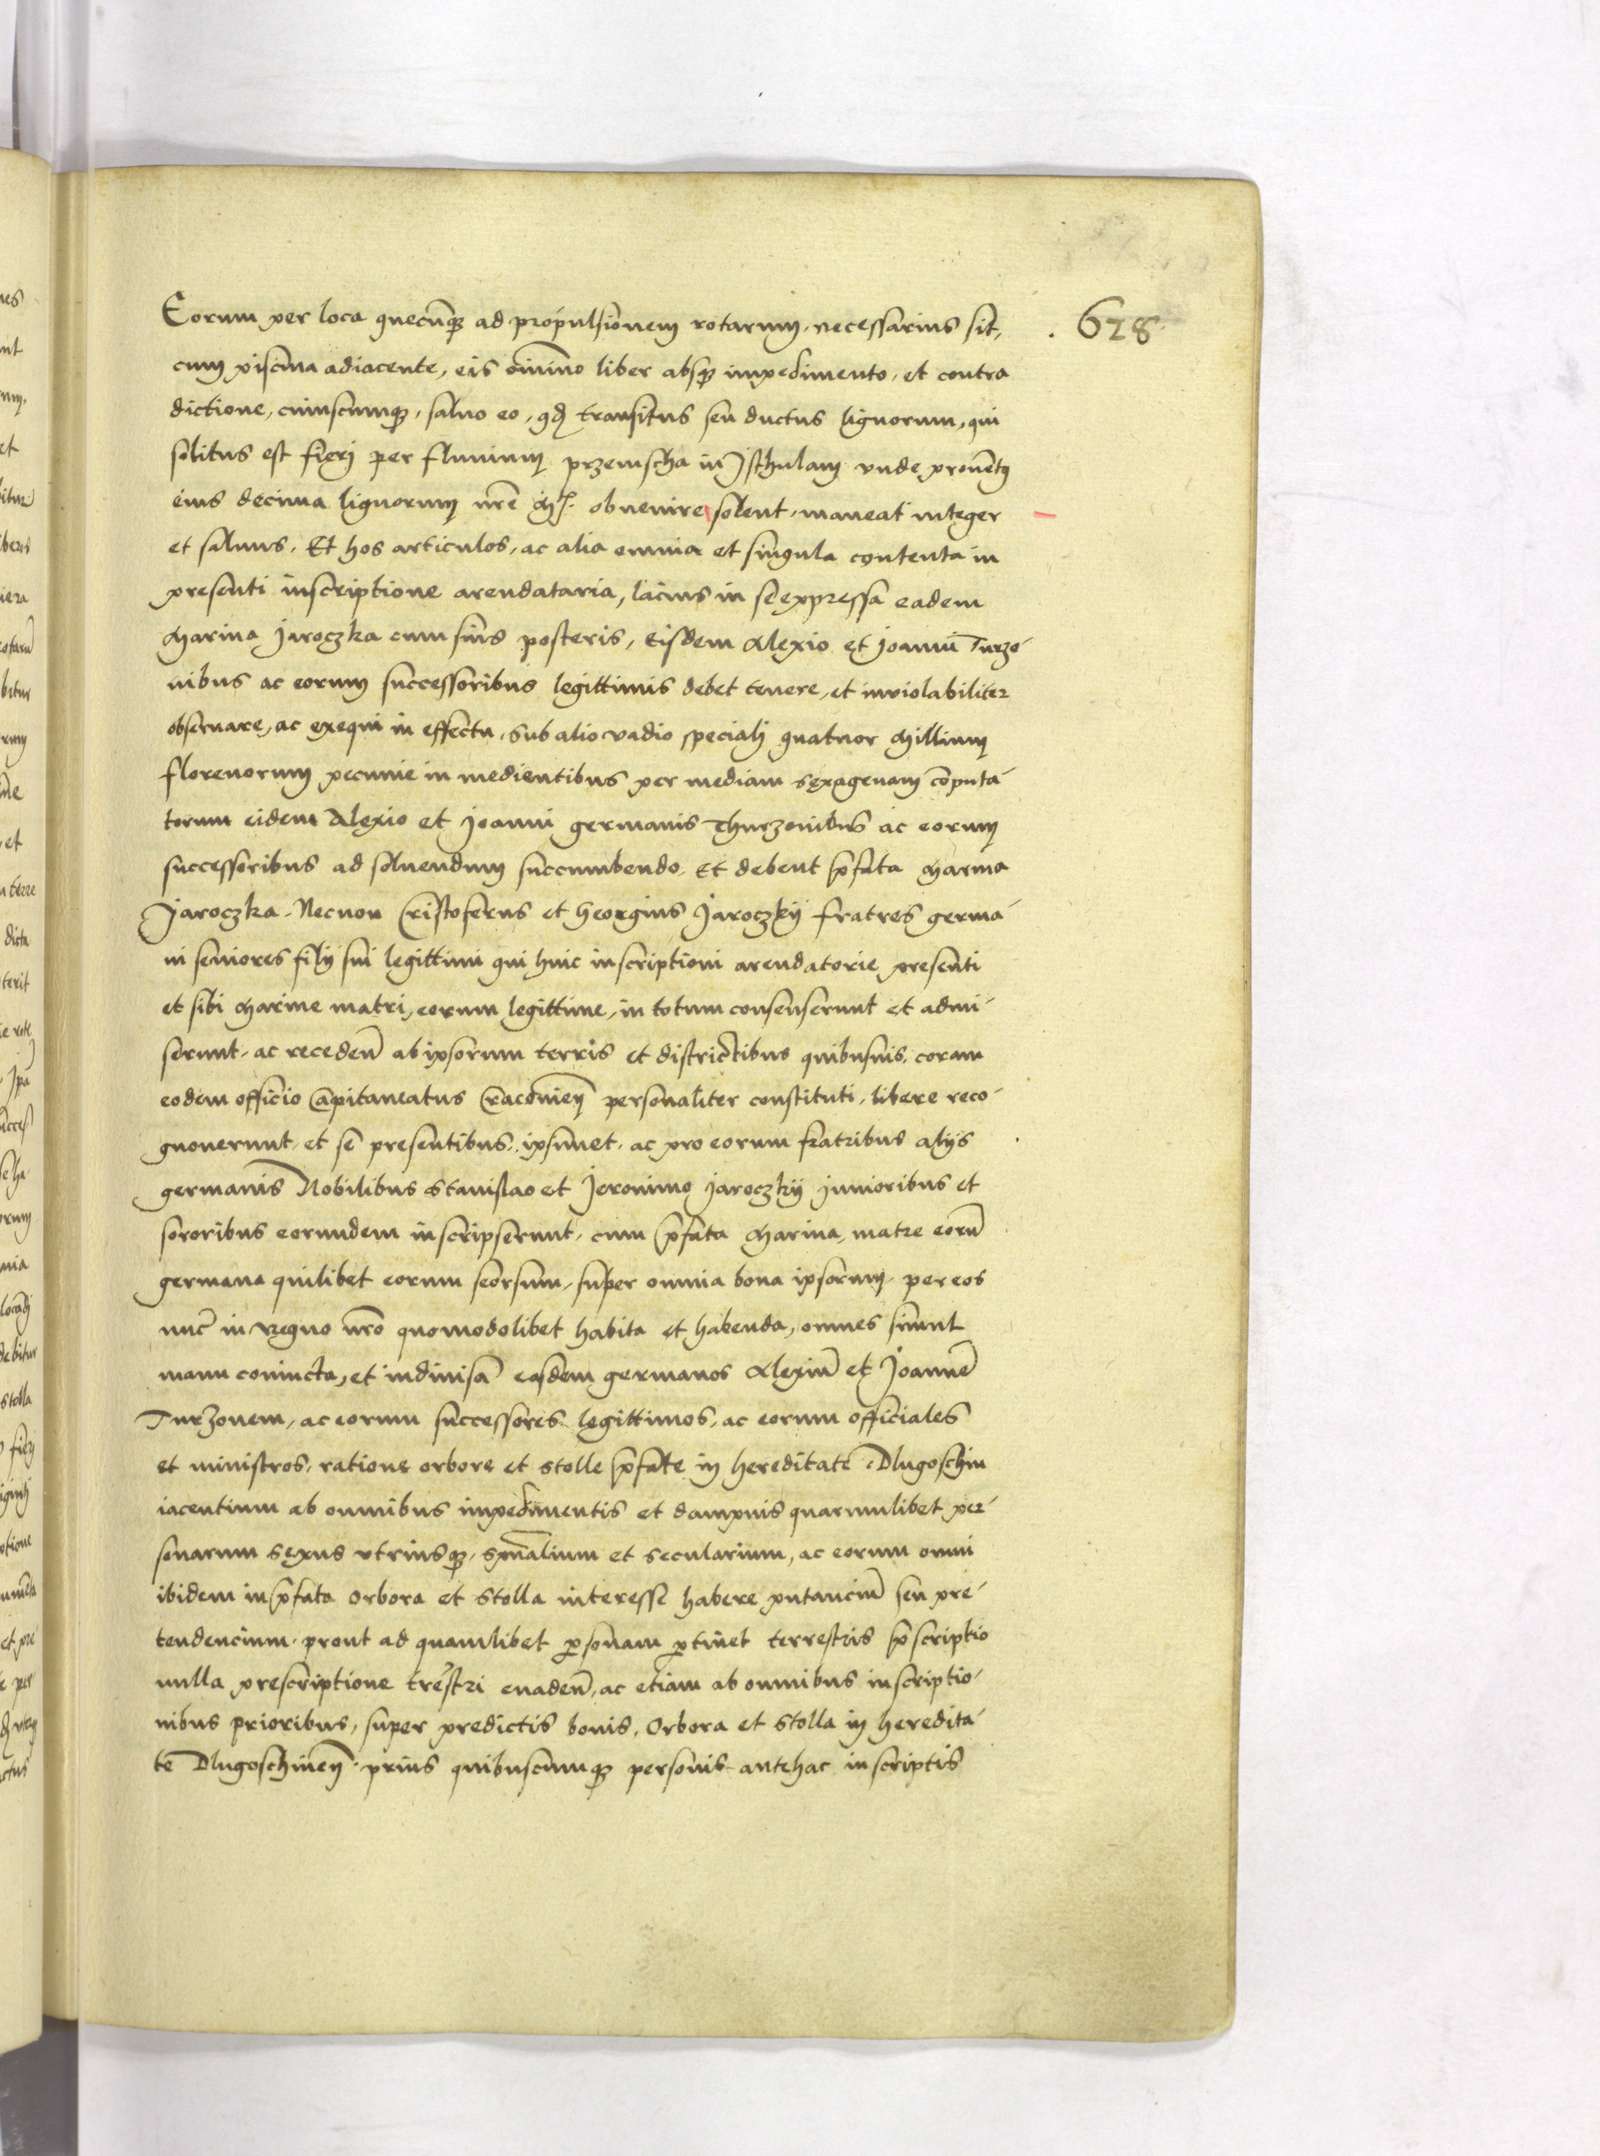 628
Eorum per loca quecūqȝ ad propulsionem rotarum, necessarius sit,
cum piscina adiacente, eis omnino liber absqȝ impedimento, et contra
dictione, cuiuscumqȝ, saluo eo, qđ transitus seu ductus lignorum, qui
solitus est fieri per fluuium przemscha in Isthulam vnde prouentꝰ
eius decima lignorum nr̄e Mti. obuenire solent, maneat integer
et saluus. Et hos articulos, ac alia omnia et singula contenta in
presenti inscriptione arendataria, lacius in se expressa eadem
Marina Jaroczka cum suis posteris, Eisdem Alexio et Joanni Turzo-
nibus ac eorum successoribus legittimis debet tenere, et inviolabiliter
obseruare, ac exequi in effectu, sub alio vadio speciali quatuor Millium
florenorum pecunie in medientibus per mediam sexagenam cōputa-
torum eidem Alexio et Joanni germanis Thurzonibus ac eorum
successoribus ad soluendum succumbendo. Et debent p̄fata Marina
Jaroczka. Necnon Cristoferus et Georgius Jaroczky fratres germa-
ni seniores filij sui legittimi qui huic inscriptioni arendatorie presenti
et sibi Marine matri, eorum legittime, in totum consenserunt et admi-
serunt, ac recedeñ ab ipsorum terris et districtibus quibusuis, coram
eodem officio Capitaneatus Cracouieñ personaliter constituti, libere reco-
gnouerunt, et se presentibus, ipsimet, ac pro eorum fratribus alijs
germanis Nobilibus Stanislao et Jeronimo Jaroczky Junioribus et
sororibus eorundem inscripserunt, cum p̄fata Marina, matre eorū
germana quilibet eorum seorsum, super omnia bona ipsorum, per eos
nūc in regno nr̄o quomodolibet habita et habenda, omnes simul
manu coniuncta, et indiuisa eosdem germanos Alexiū et Joannē
Turzonem, ac eorum successores legittimos, ac eorum officiales
et ministros, ratione orbore et stolle p̄fate in hereditate Dlugoschin
iacentium ab omnibus impedimentis et dampnis quarumlibet per-
sonarum sexus vtriusqȝ, spūalium et secularium, ac eorum omni
ibidem in p̄fata Orbora et stolla interesse habere putanciū seu pre-
tendencium, prout ad quamlibet personam pertinet terrestris p̄scriptio
nulla prescriptione tr̄estri euadeñ, ac etiam ab omnibus inscriptio-
nibus prioribus, super predictis bonis, Orbora et stolla in heredita-
te Dlugoschineñ. prius quibuscumqȝ personis antehac inscriptis